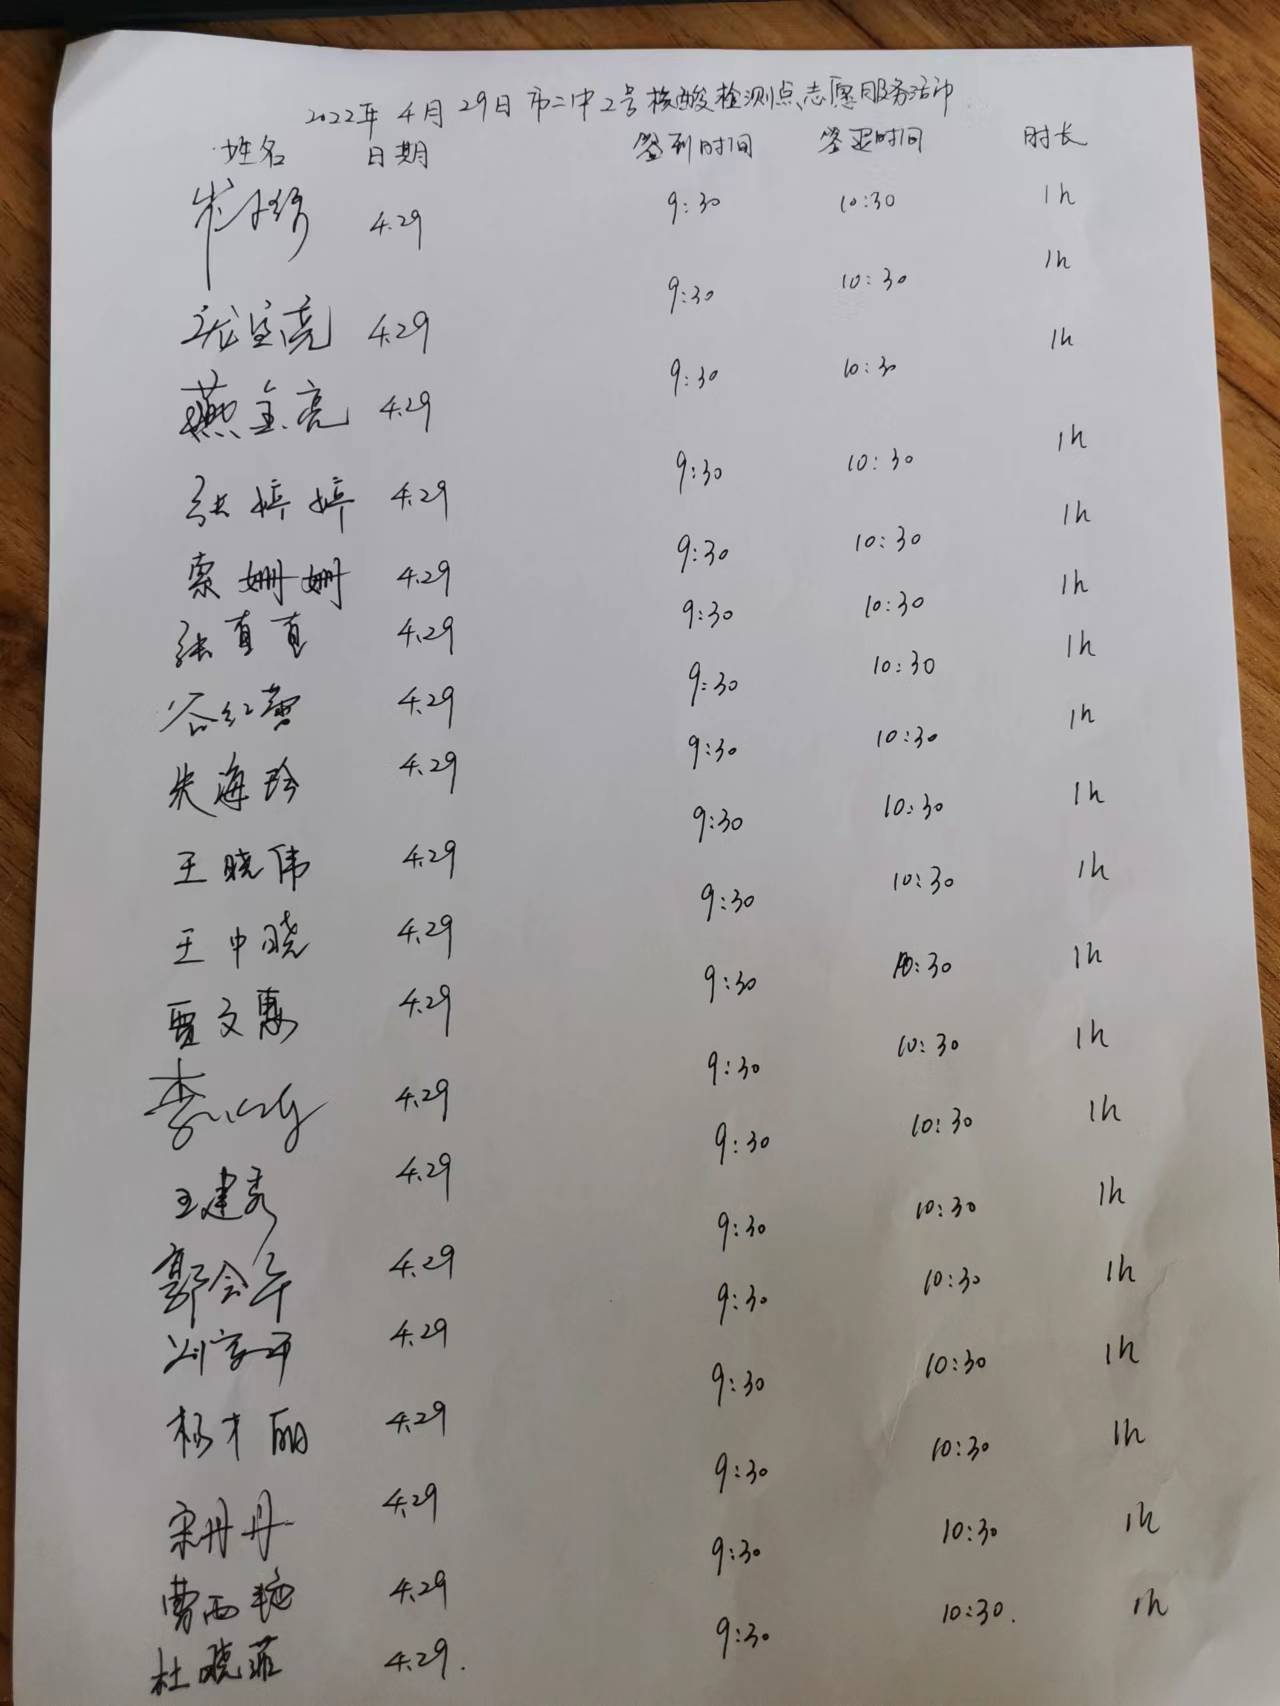 2022年4月29日市二中2号核酸检测点志愿服务活动
姓名 日期 签到时间 签退时间 时长
4.29 9:30 10:30 1h
4.29 9:30 10:30 1h
燕金亮 4.29 9:30 10:30 1h
张婷婷 4.29 9:30 10:30 1h
索姗姗 4.29 9:30 10:30 1h
张直直 4.29 9:30 10:30 1h
谷红蕾 4.29 9:30 10:30 1h
海玲 4.29 9:30 10:30 1h
王晓伟 4.29 9:30 10:30 1h
王中晓 4.29 9:30 10:30 1h
贾文惠 4.29 9:30 10:30 1h
李 4.29 9:30 10:30 1h
王建秀 4.29 9:30 10:30 1h
郭会午 4.29 9:30 10:30 1h
刘 4.29 9:30 10:30 1h
杨才丽 4.29 9:30 10:30 1h
宋丹丹 4.29 9:30 10:30 1h
曹西艳 4.29 9:30 10:30 1h
杜晓菲 4.29. 9:30 10:30. 1h